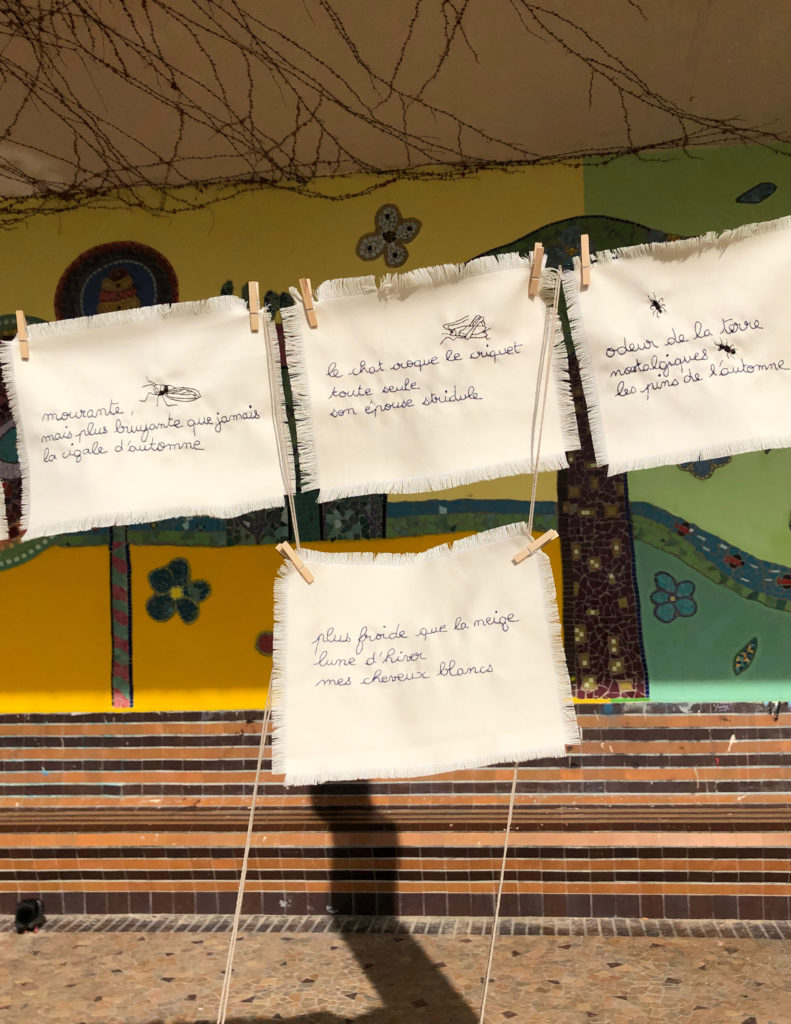 mourante,
mais plus bruyante que jamais
la cigale d'automne
le chat croque le criquet
toute seule
son épouse stridule
odeur de la terre
nostalgiques
les pins de l'automne
plus froide que la neige
lune d'hiver
mes cheveux blancs